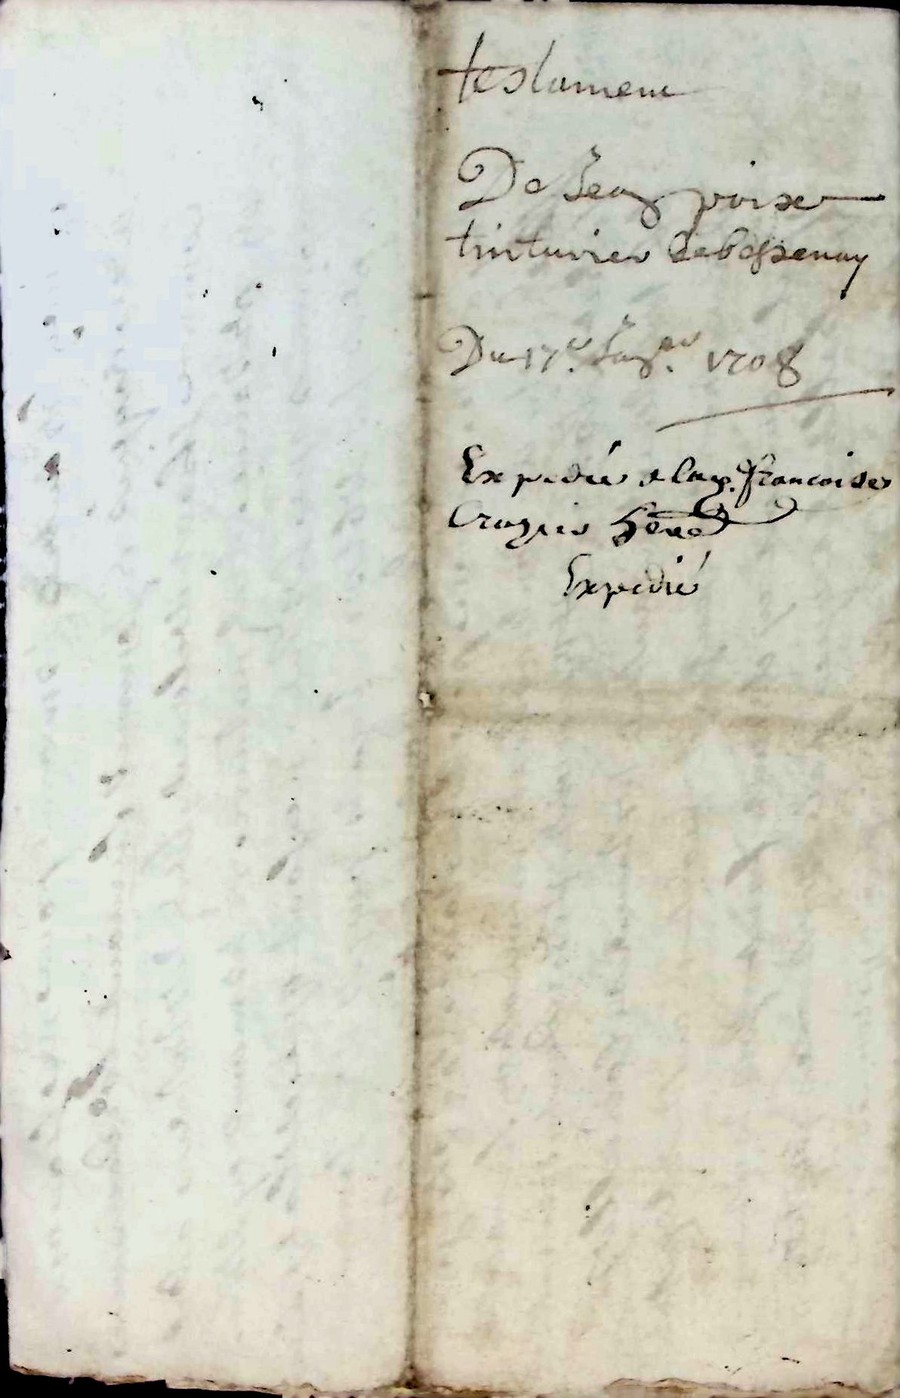 testament
De Jean poixe
tinturier de bessenay
Du 17e. Janer. 1708
Expedié a lad. francoise
Crozier
Expedié